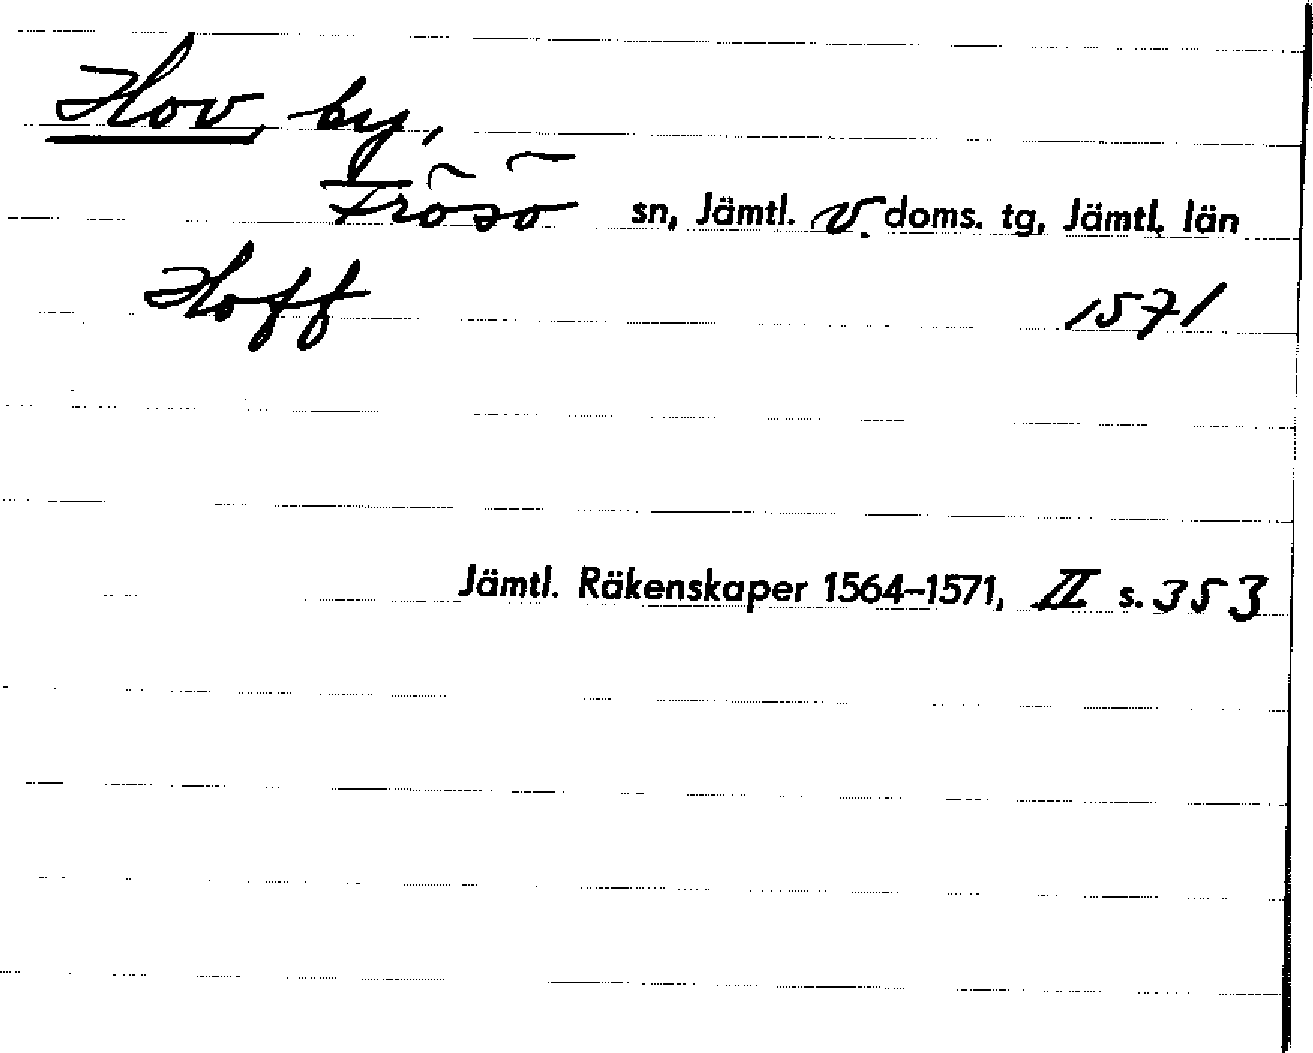 Hov by,
Frösö sn, Jämtl. v. doms. tg, Jämtl. län
Hoff 1571
Jämtl. Räkenskaper 1564–1571, II s. 353